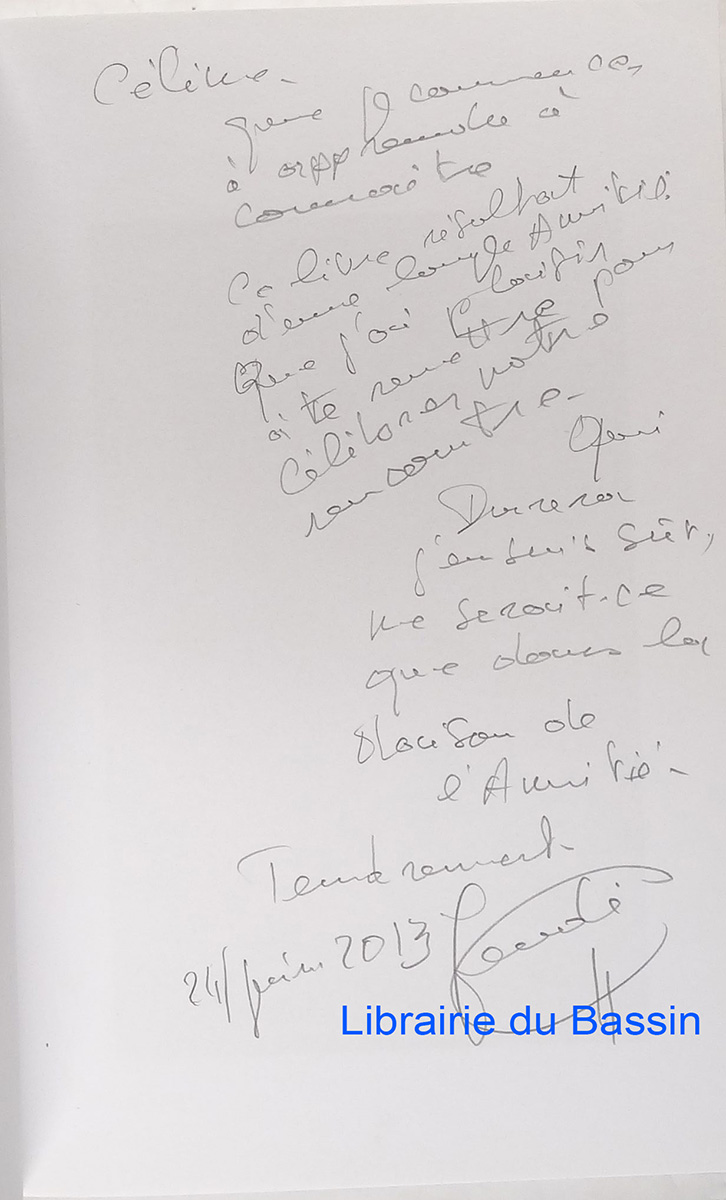 Céline -
que je commence,
à apprendre à
connaître
Ce livre résultat
d'une longue Amitié.
Que j'ai plaisir
à te remettre pour
célébrer notre
rencontre -
Qui
Durera
j'en suis sûr,
ne serait-ce
que dans la
Maison de
l'Amitié -
Tendrement
24/juin 2013
Librairie du Bassin